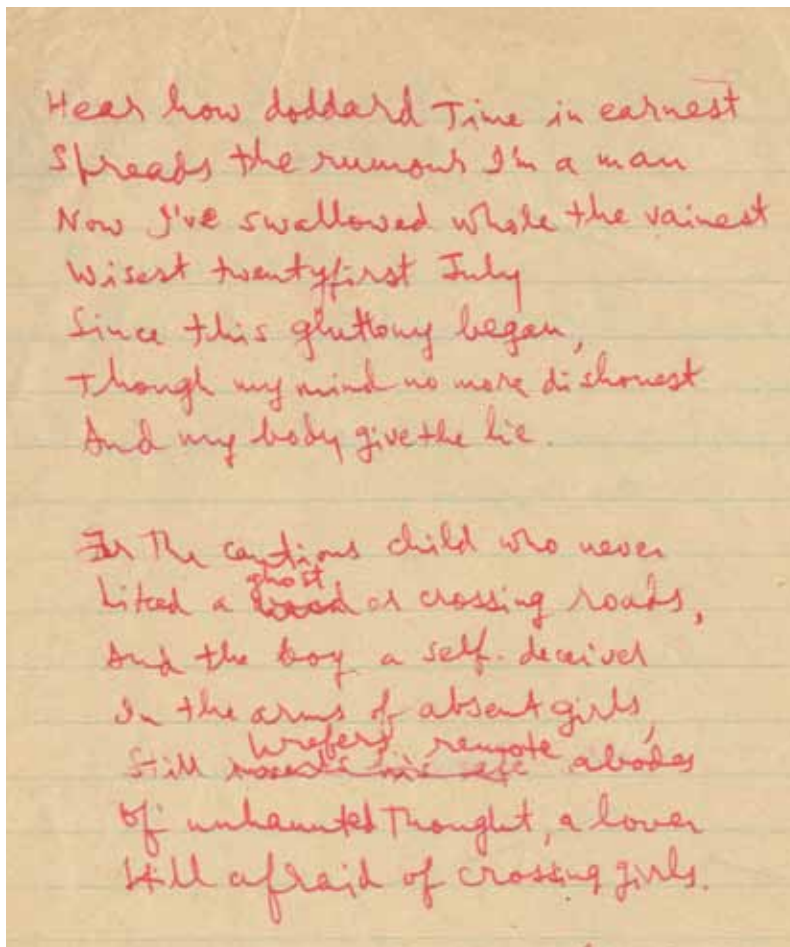 Hear how doddard Time in earnest
Spreads the rumour I'm a man
Now I've swallowed whole the vainest
Wisest twentyfirst July
Since this gluttony began,
Though my mind no more dishonest
And my body give the lie.
For The cautious child who never
ghost
Liked a or crossing roads,
And the boy a self-deceiver
In the arms of absent girls,
prefers remote
Still abodes
Of unhaunted Thought, a lover
Still afraid of crossing girls.